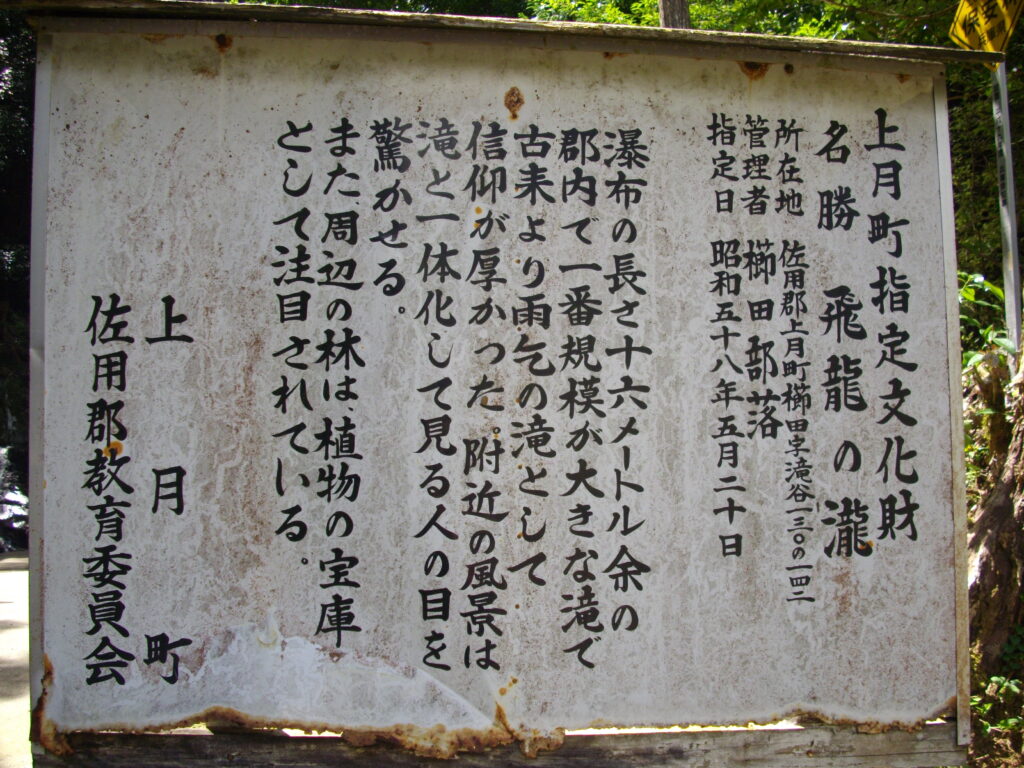 上月町指定文化財
名勝 飛龍の瀧
所在地 佐用郡上月町櫛田字滝谷一三〇の一四二
管理者 櫛田部落
指定日 昭和五十八年五月二十日
瀑布の長さ十六メートル余の
郡内で一番規模が大きな滝で
古来より雨乞の滝として
信仰が厚かった。附近の風景は
滝と一体化して見る人の目を
驚かせる。
また、周辺の林は、植物の宝庫
として注目されている。
上月町
佐用郡教育委員会